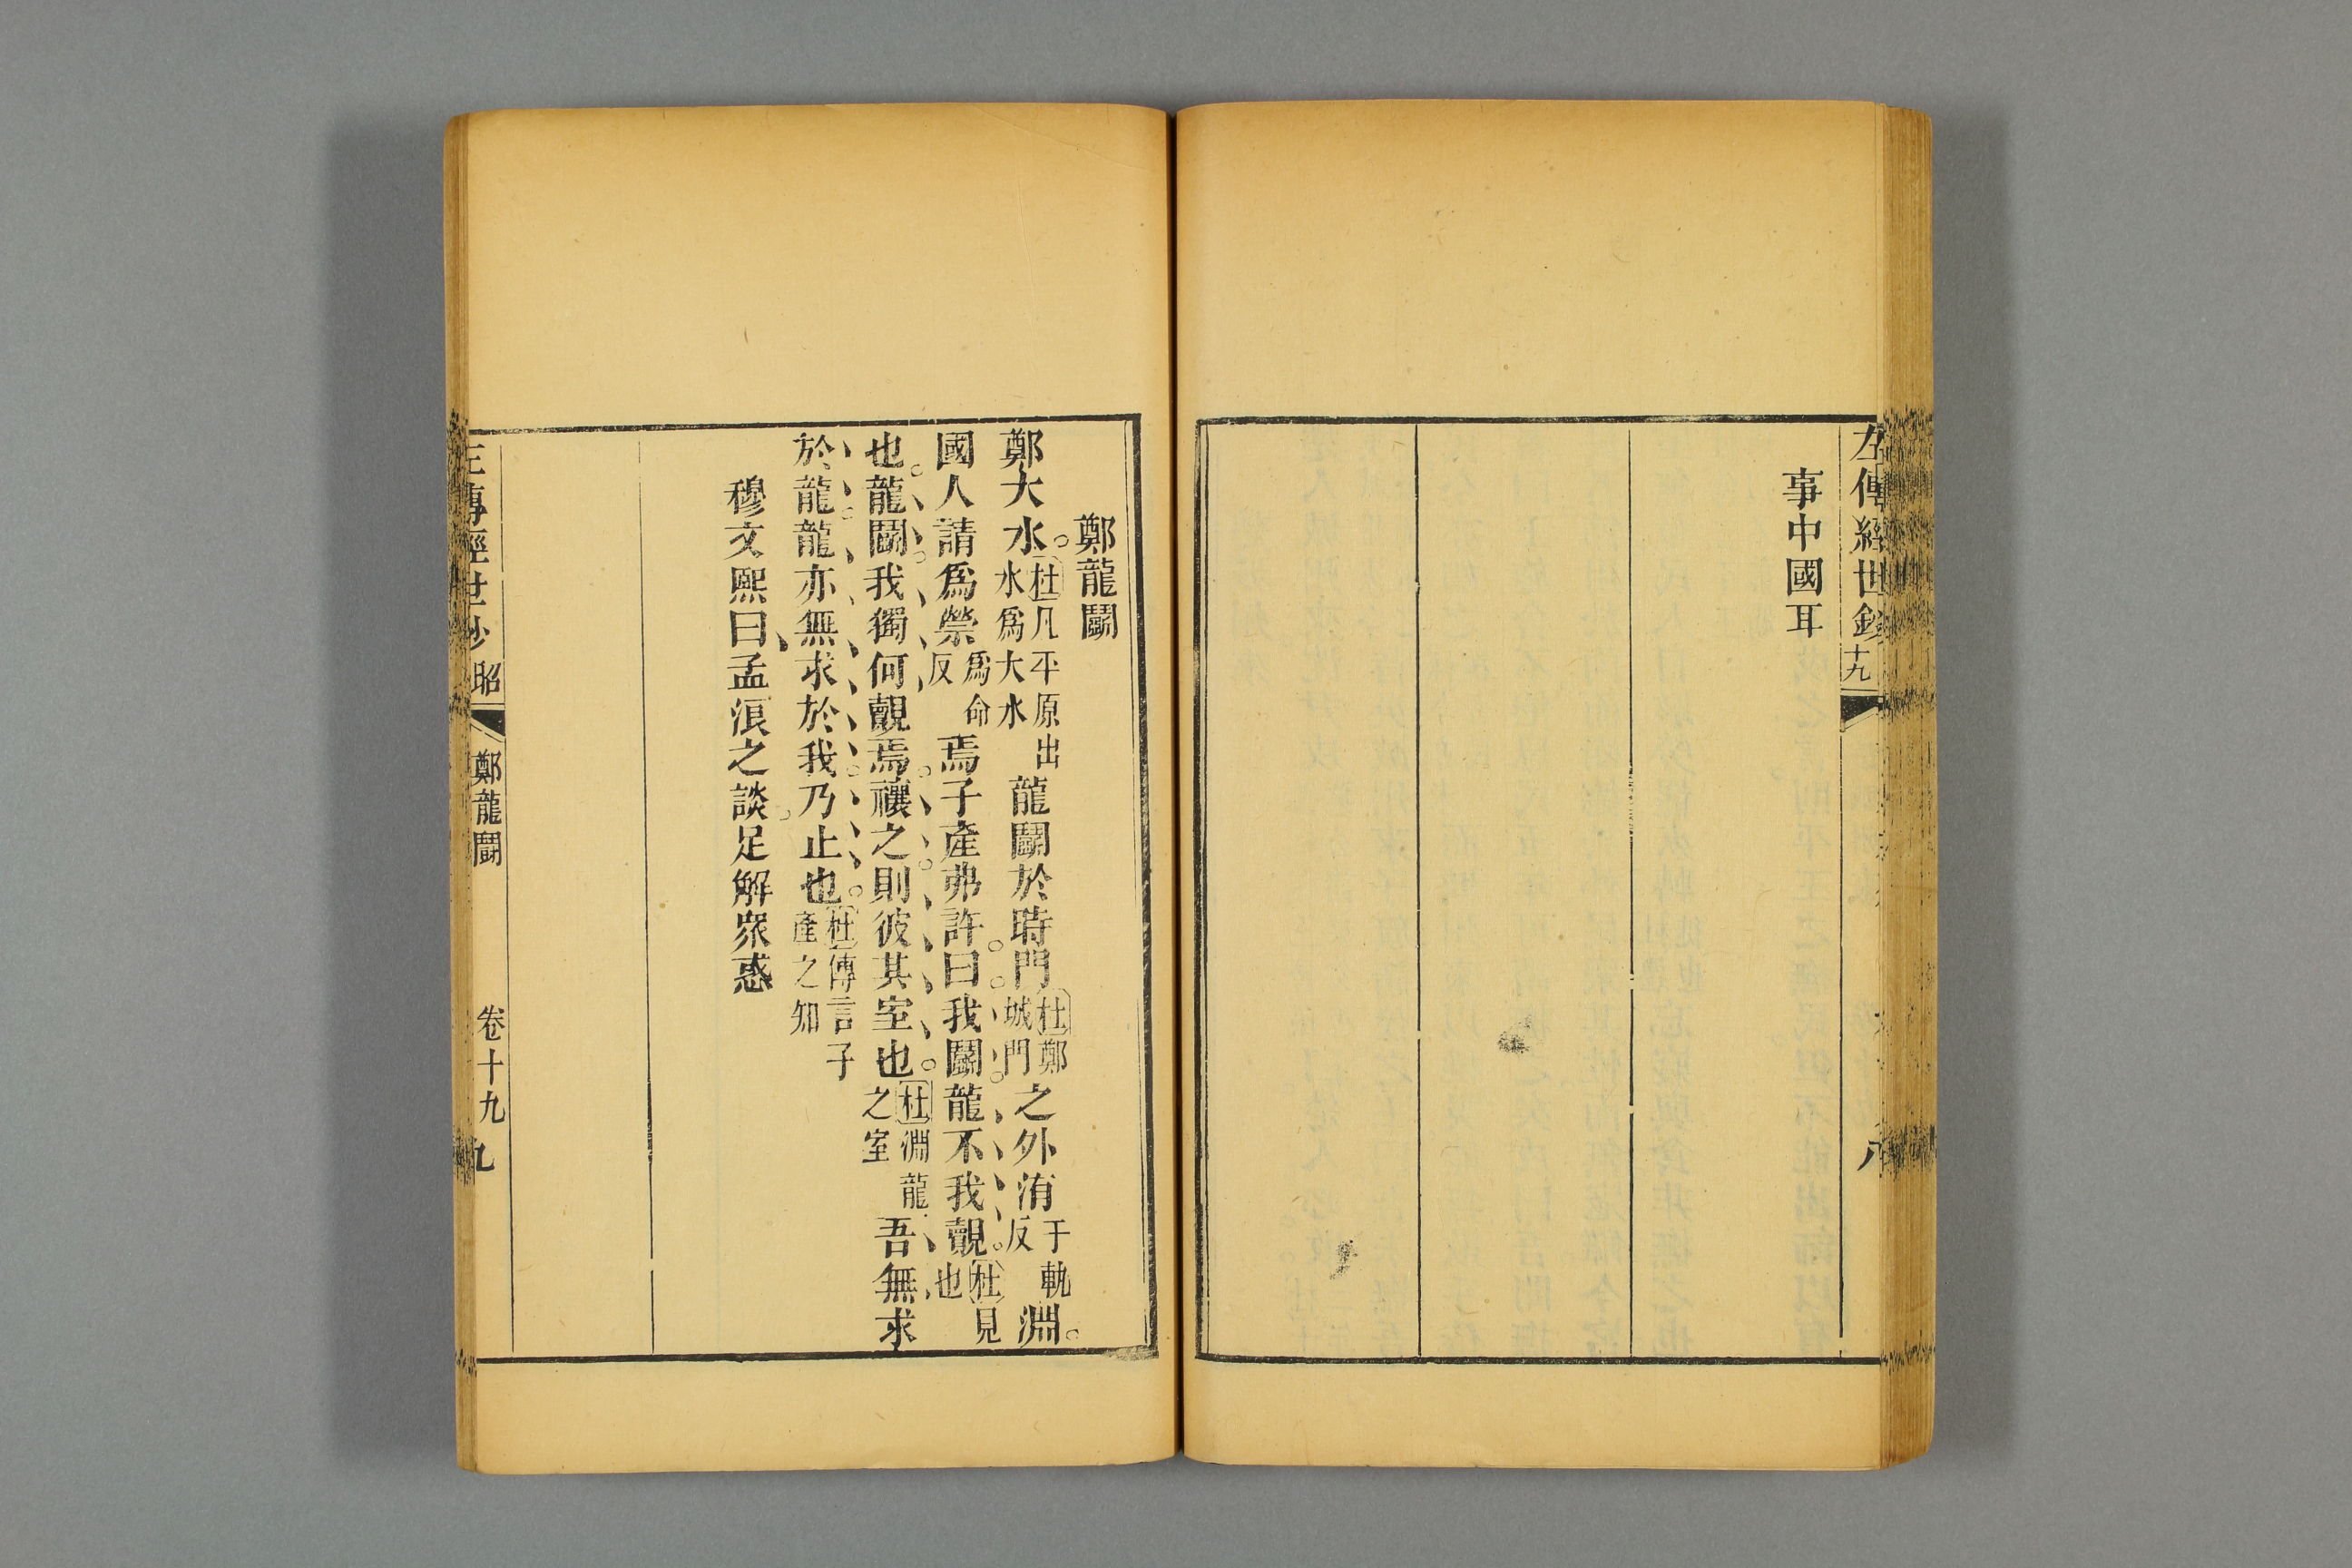 左傳經世鈔 十九 八
事中國耳
鄭龍鬭
鄭大水杜凡平原出水爲大水龍鬭於時門杜鄭城門之外洧于軌反淵
國人請爲禜爲命反焉子產弗許曰我鬭龍不我覿杜見也
也龍鬭我獨何覿焉禳之則彼其室也杜淵龍之室吾無求
於龍龍亦無求於我乃止也杜傳言子產之知
穆文熙曰孟浪之談足解衆惑
左傳經世鈔 昭 鄭龍鬭 卷十九 九